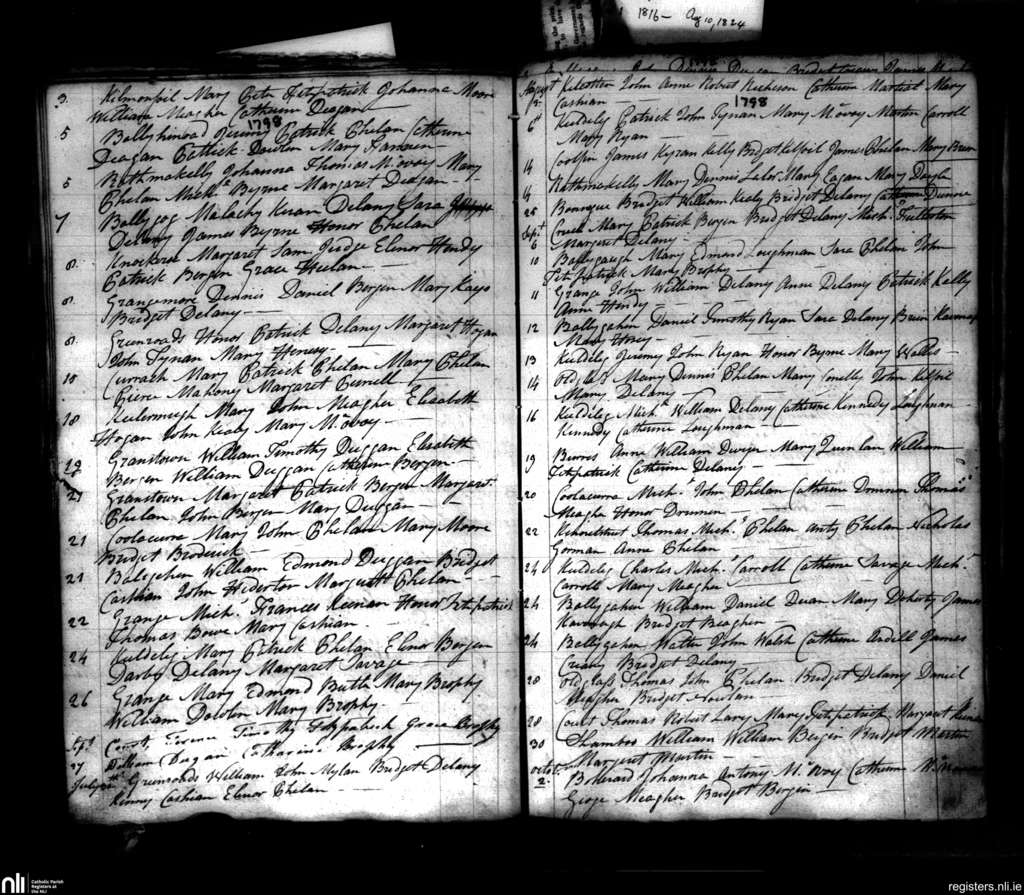 1816 - Aug 10, 1824
3. Kilmonfoil Mary Peter Fitzpatrick Johanna Moore
William Meagher Catherine Deegan
1798
5 Ballyhinrad Jeremy Patrick Phelan Catherine
Deagan Pattrick Dowlen Mary
5 Rathmakelly Johanna Thomas M:evoy Mary
Phelan Mich.l Byrne Margaret Deegan
7 Ballygog Malachy Keran Delany Sara
Delany James Byrne Honor Phelan
8. Knockera Margaret Sam Judge Elenor Hendy
Patrick Bergen Grace Phelan
8. Grangemore Dennis Daniel Bergen Mary Kayo
Bridget Delany
8. Greenroads Honor Patrick Delany Margaret Hogan
John Tynan Mary
10 Currach Mary Patrick Phelan Mary Phelan
Pierce Mahoney Margaret
18 Mary John Meagher Elizabeth
Hogan John Kealy Mary M:evoy
19 Granstown William Timothy Duggan Elizabeth
Bergen William Duggan Catherine Bergen
21 Granstown Margaret Patrick Bergen Margaret
Phelan John Bergen Mary Duggan
21 Coolacurre Mary John Phelan Mary Moore
Bridget Broderick
21 Balegehen William Edmond Duggan Bridget
Cashian John Hiderton Margaret Phelan
22 Grange Mich.l Frances Keenan Honor Fitzpatrick
Thomas Bowe Mary Cashian
24 Kuldeleg Mary Patrick Phelan Elenor Bergen
Darby Delany Margaret Savage
26 Grange Mary Edmond Butler Mary Brophy
William Dowlen Mary Brophy
Sept Court Terence Timothy Fitzpatrick Grace Brophy
27 William Dugan Catharine Brophy
Greenroads William John Mylan Bridget Delany
Cashian Elenor Phelan
August Kilcotton John Anne Robert Richeson Catherine Martial Mary
Cashian
1798
6th Kuldeleg Patrick John Tynan Mary M:evoy Martin Carroll
Mary Ryan
14 Coolfin James Kyran Kelly Bridget Kilfoil James Phelan Mary Breen
14 Rathmakelly Mary Dennis Lalor Mary Eagan Mary Doyle
25 Bonnague Bridget William Kealy Bridget Delany Catherine Dunne
Sept Creek Mary Patrick Bergen Bridget Delany Mich.l Fullerton
6 Margaret Delany
10 Ballygaugh Mary Edmond Loughman Sara Phelan John
Fitzpatrick Mary Brophy
11 Grange John William Delany Anne Delany Patrick Kelly
Anne Hendy
12 Ballygehen Daniel Timothy Ryan Sara Delany Brien
Mary
13 Kuldeleg Jeremy John Ryan Honor Byrne Mary Wallis
14 Oldglass Mary Dennis Phelan Mary Conelly John Kilfoil
Mary Delany
16 Kuldeleg Mich.l William Delany Catherine Kennedy Loughman
Kennedy Catherine Loughman
19 Burros Anne William Dwyer Mary Quinlan William
Fitzpatrick Catherine Delany
20 Coolacurre Mich.l John Phelan Catherine Drennen Thomas
Meagher Honor Drennen
22 Kihouettent Thomas Mich.l Phelan Anty Phelan Nicholas
Gorman Anne Phelan
24 Kuldeleg Charles Mich.l Carroll Catherine Savage Mich.l
Carroll Mary Meagher
24 Ballygehen William Daniel Duan Mary Doherty James
Kavanagh Bridget Beaghen
24 Ballygehen Walter John Walsh Catherine Ardell James
Creamy Bridget Delany
28 Oldglass Thomas John Phelan Bridget Delany Daniel
Meagher Bridget
28 Court Thomas Robert Lacy Mary Fitzpatrick Margaret
30 Shamboe William William Bergen Bridget Martin
Margaret Martin
October
2. Johanna Antony M:Evoy Catherine
George Meagher Bridget Bergin
nli
Catholic Parish
Registers at
the NLI
registers.nli.ie